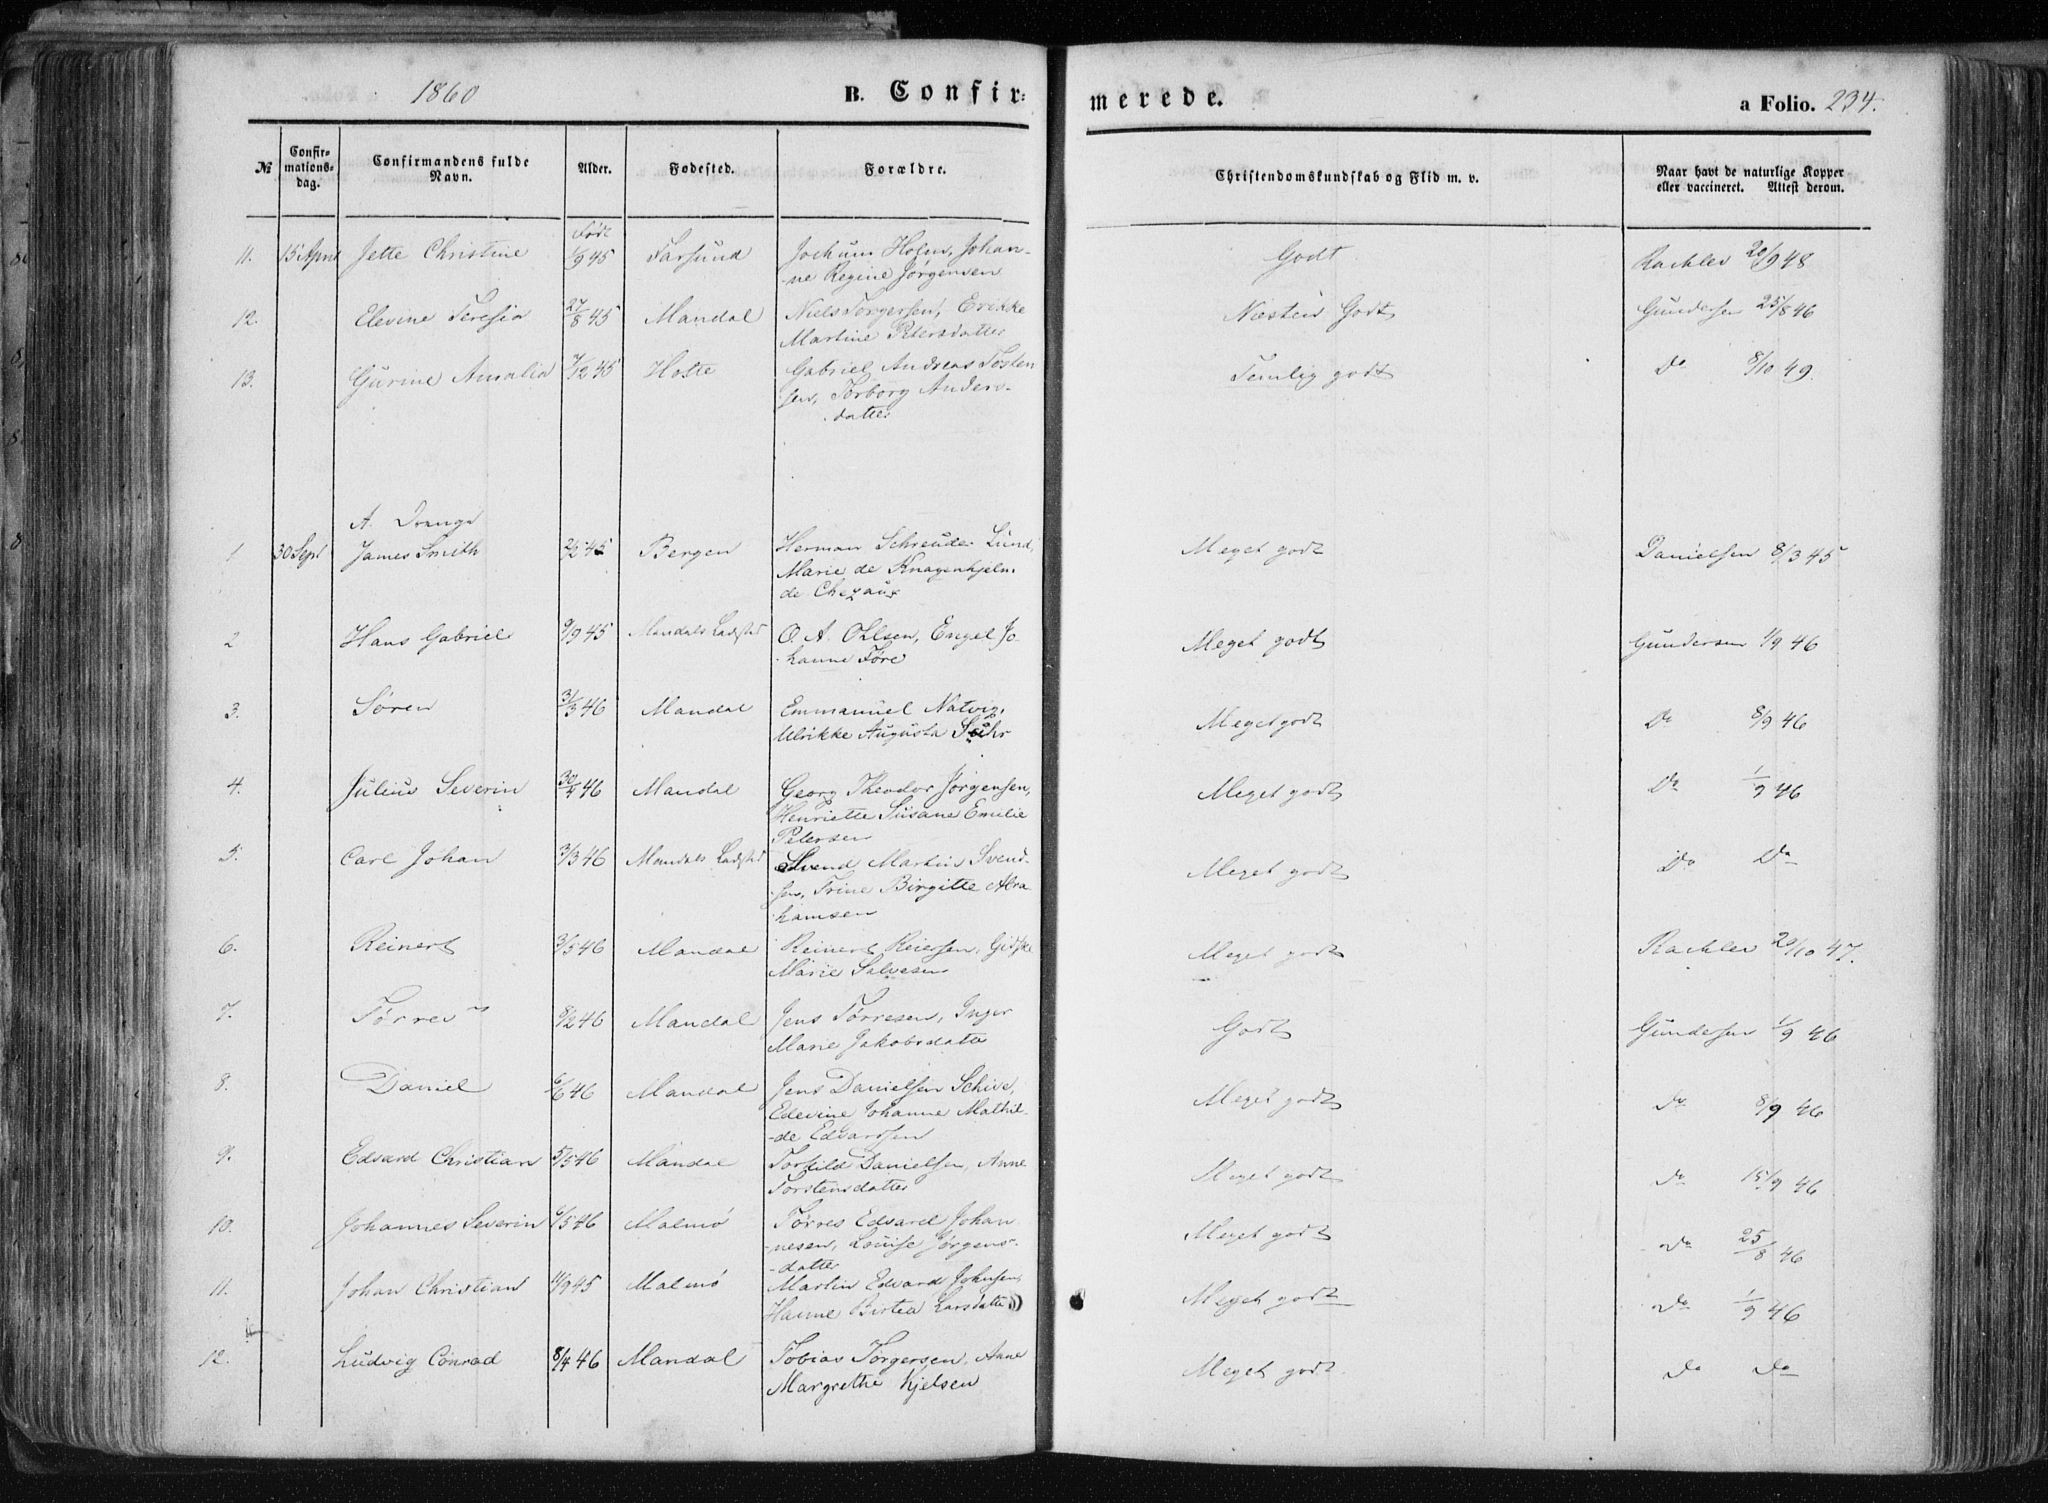 1860 B. Confirmerede. a Folio. 234.
№ Confirmationsdag. Confirmandens fulde Navn. Alder. Fødested. Forældre. Christendomskundskab og Flid m. v. Naar havt de naturlige Kopper eller vaccineret. Attest derom.
Født
11. 15 April Jette Christine 1/9 45 Farsund Jochum Holm, Johan-
ne Regine Jørgensen Godt Rachlev 20/9 48
12. Elevine Teresia 27/8 45 Mandal Niels Torgersen, Erikke
Martine Petersdatter Næsten Godt Gundersen 25/8 46
13. Gurine Amalia 7/12 45 Holte Gabriel Andreas Tosten-
sen, Torborg Anders-
datter Temlig godt Do 8/10 49.
A. Drange
1 30 Sept James Smith 2/2 45 Bergen Herman Schreuder Lund,
Marie de Knagenhjelm
de Chezaux Meget godt Danielsen 8/3 45
2 Hans Gabriel 9/9 45 Mandals Ladsted O. A. Ohlsen, Engel Jo-
hanne Tøre Meget godt Gundersen 1/9 46
3. Søren 3/3 46 Mandal Emmanuel Natvig,
Ulrikke Augusta Suhr Meget godt Do 8/9 46
4. Julius Severin 30/4 46 Mandal Georg Theodor Jørgensen,
Henriette Susane Emilie
Petersen Meget godt Do 1/9 46
5. Carl Johan 3/3 46 Mandals Ladsted Svend Martin Svend-
sen, Trine Birgitte Abra-
hamsen Meget godt Do Do
6. Reinert 3/5 46 Mandal Reinert Reiersen, Gidske
Marie Salvesen Meget godt Rachlev 20/10 47.
7. Tørres 8/2 46 Mandal Jens Tørresen, Inger
Marie Jakobsdatter Godt Gundersen 1/9 46
8. Daniel 6/6 46 Mandal Jens Danielsen Schive,
Edevine Johanne Mathil-
de Edvardsen Meget godt Do 8/9 46
9. Edvard Christian 5/5 46 Mandal Torkild Danielsen, Anne
Torstensdatter Meget godt Do 15/9 46
10. Johannes Severin 6/5 46 Malmø Tørres Edvard Johan-
nesen, Louise Jørgens-
datter Meget godt Do 25/8 46
11. Johan Christian 11/9 45 Malmø Martin Edvard Johnsen,
Hanne Birtea Larsdatter Meget godt Do 1/9 46
12. Ludvig Conrad 8/4 46 Mandal Tobias Torgersen, Anne
Margrethe Kjelsen Meget godt Do Do